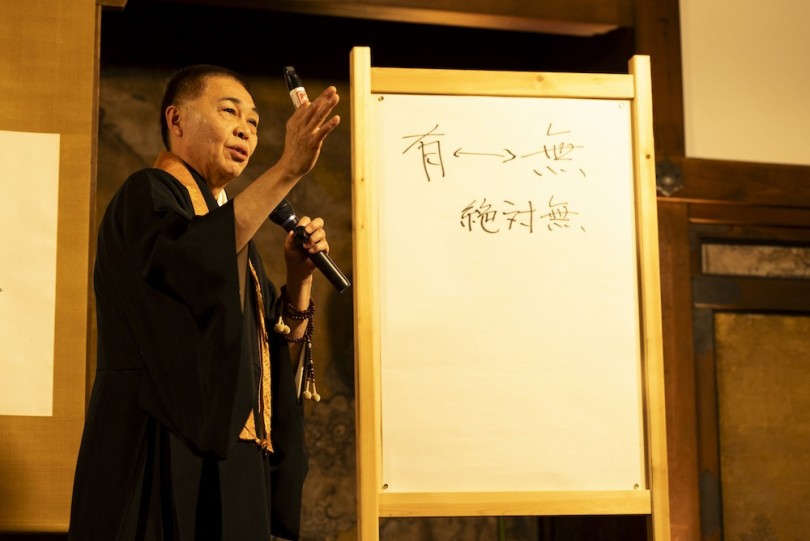 有↔無
絶対無